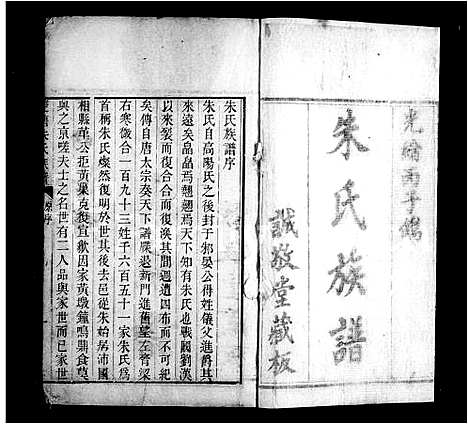 光緒丙子鐫
朱氏族譜
誠敬堂藏板
朱氏族譜序
朱氏自高陽氏之後封于邾晏公得姓儀父進爵其
來遠矣晶晶焉翹翹焉天下知有朱氏也戰劉漢
以來裂而復合合而復離其間遺四布而不可紀
矣傳自唐太宗奏天下譜牒退新門進舊望左膏梁
右寒微合一百九十三姓千六百五十一家朱氏為
首柄朱氏燦然復明於世其後去邑從朱始居沛國
相縣革公拒黃巢克復宣歙因家黃墩鐘鳴鼎食莫
與之京嗟夫士之名世有二人品與家世而已家世